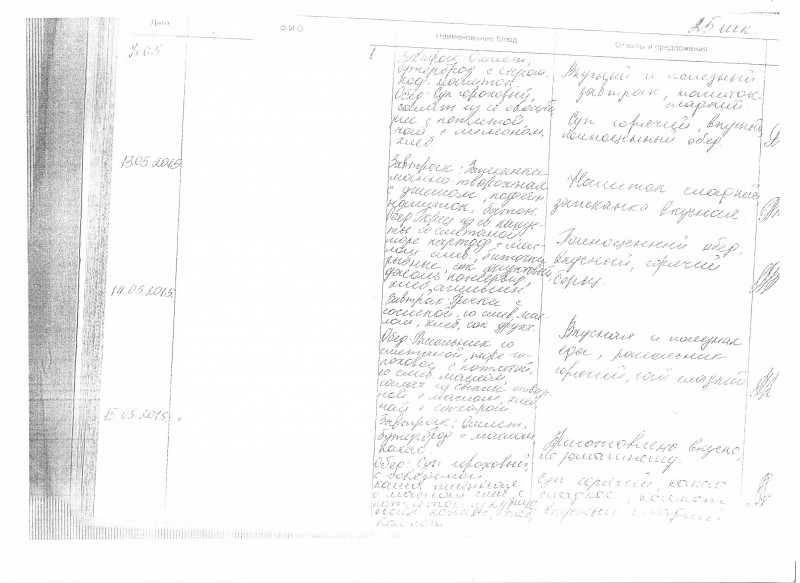 25 шк.
Дата
Ф.И.О.
Наименование блюд
Отзывы и предложения
Завтрак Омлет,
бутерброд с сыром.
коф. напиток
Обед: Суп гороховый,
салат из св овощей
рис с котлетой,
чай с лимоном.
хлеб.
Вкусный и полезный
завтрак, напиток
сладкий
Суп горячий, вкусный,
полноценный обед.
13.05.2015
Завтрак: Запеканка
манно творожная
с джемом, кофейн
напиток, батон.
Обед Борщ из св. капус-
ты со сметаной
пюре картоф с мас-
лом слив., биточки
рыбные, сок фруктовый
фасоль консервир,
хлеб, апельсин.
Напиток сладкий
запеканка вкусная.
Полноценный обед,
вкусный, горячий
борщ.
14.05.2015
Завтрак: Гречка с
сосиской. со слив, мас-
лом, хлеб, сок фрукт.
Обед: Рассольник со
сметаной, пюре го-
роховое с котлетой,
со слив маслом,
салат из свеклы отвар-
ной, с маслом, хлеб
чай с сахаром
Вкусная и полезная
еда, рассольник
горячий, чай сладкий
15.05.2015
Завтрак: Омлет.
бутерброд с маслом
какао.
Обед: Суп гороховый,
с говядиной
каша пшенная
с маслом слив, с
котлетой из куриц
хлеб,
компот
Приготовлено вкусно,
по домашнему.
Суп горячий, какао
сладкое, компот
вкусный сладкий